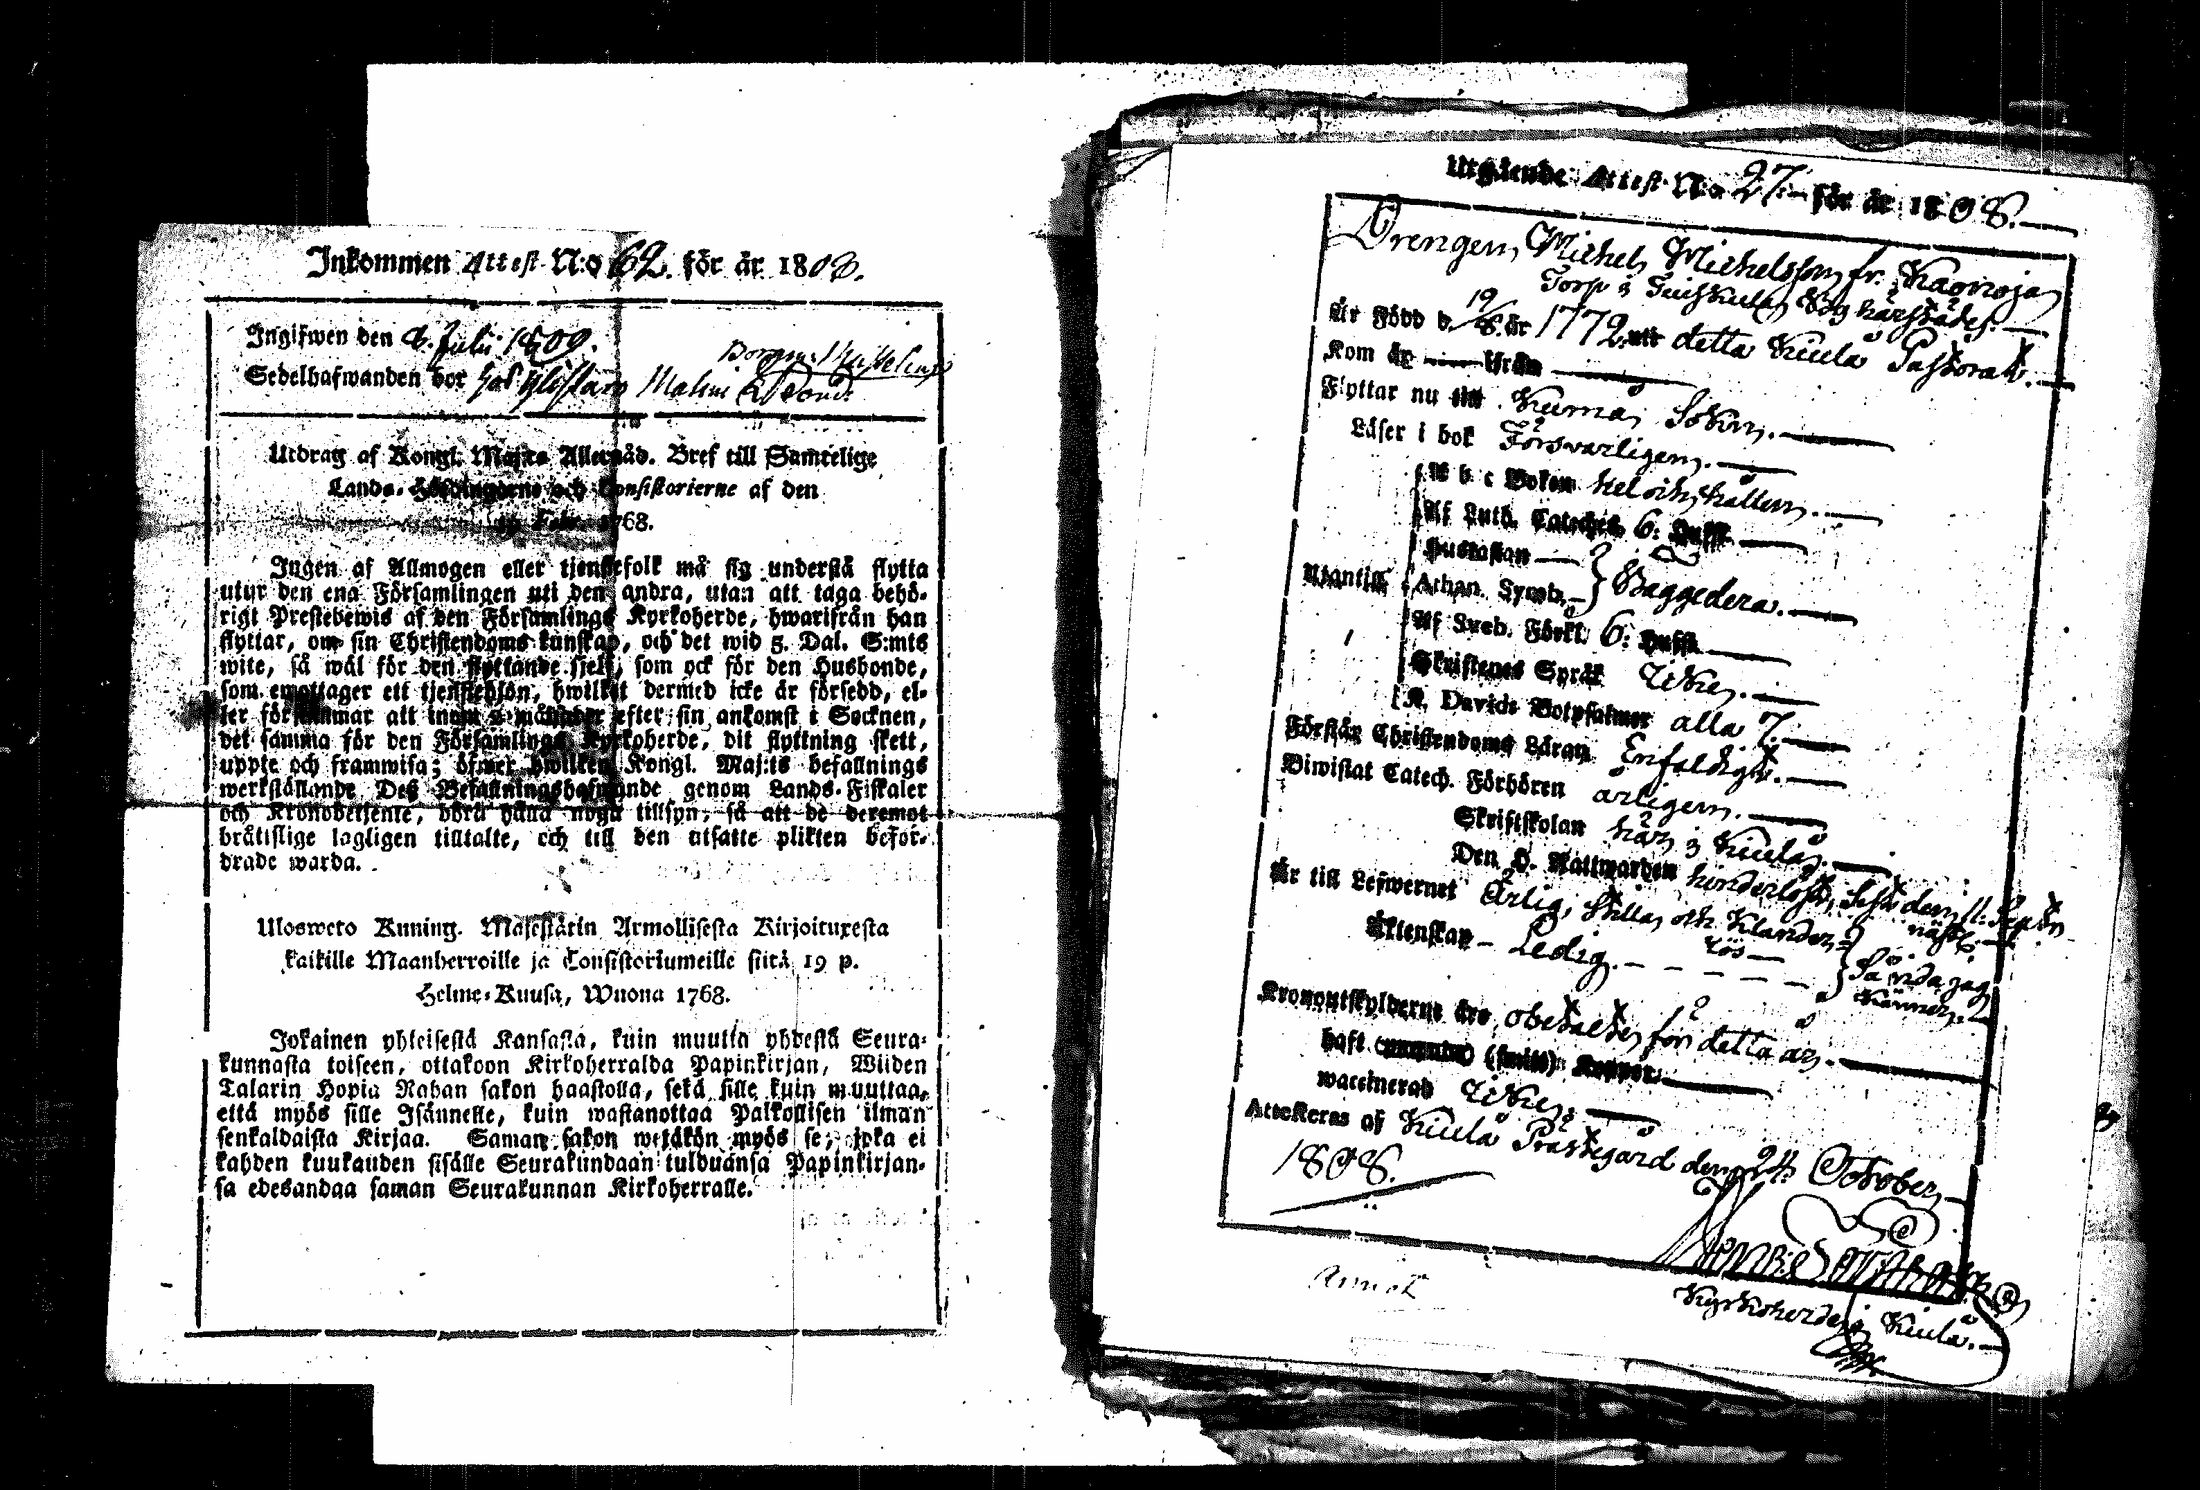 Inkommen Attest N:o 62. för år 1808.
Ingifwen den 8. Juli 1809.
Sedelhafwanden bor hos
Utdrag af Kongl. Maj:ts Allernåd. Bref till Samtelige
Lands-Höfdingarne och Consistorierne af den
19 Febr. 1768.
Ingen af Allmogen eller tjenstefolk må sig understå flytta
utur den ena Församlingen uti den andra, utan att taga behö-
rigt Prestebewis af den Församlings Kyrkoherde, hwarifrån han
flyttar, om sin Christendoms kunskap, och det wid 5. Dal. S:mts
wite, så wäl för den flyttande sjelf, som ock för den Husbonde,
som emottager ett tjenstehjon, hwilket dermed icke är försedd, el-
ler försummar att inom 2 månader efter sin ankomst i Socknen,
det samma för den Församlings Kyrkoherde, dit flyttning skett,
uppte och framwisa; öfwer hwilken Kongl. Maj:ts befallnings
werkställande Deß Befallningshafwande genom Lands-Fiskaler
och Kronobetjente, böra hålla noga tillsyn, så att de deremot
bråtislige lagligen tilltalte, och till den utsatte plikten befor-
drade warda.
Ulosweto Kuning. Majestätin Armollisesta Kirjoituxesta
kaikille Maanherroille ja Consistoriumeille siitä 19 p.
Helme-Kuusa, Wuona 1768.
Jokainen yhteisestä Kansasta, kuin muutta yhdestä Seura-
kunnasta toiseen, ottakoon Kirkoherralda Papinkirjan, Wiiden
Talarin Hopia Rahan sakon haastolla, sekä sille kuin muuttaa,
että myös sille Isännelle, kuin wastanottaa Palkollisen ilman
senkaldaista Kirjaa. Saman sakon wetäkön myös se, joka ei
kahden kuukauden sisälle Seurakundaan tulduansa Papinkirjan-
sa edesandaa saman Seurakunnan Kirkoherralle.
Utgående Attest N:o 27. för år 1808.
Drengen Michel Michelsson fr.
Torp i härstädes.
Är Född d. 19/8 år 1772 uti detta Kiula Pastorat.
Kom år — ifrån —
Flyttar nu till Kumo Sokn.
Läser i bok Försvarligen.
A b c Boken
Af Luth. Cateches 6: Hufst.
Hustaflan
Utantill Athan. Symb. } Baggedera.
Af Sveb. Förkl. 6: Hufst.
Skriftenes Språk Icke.
K. Davids Botpsalmer alla 7.
Förstår Christendoms Läran Enfaldigt.
Biwistat Catech. Förhören årligen.
Skriftskolan här i Kiula.
Den H. Nattwarden sist den 11. Septbr
näst.
Är till Lefwernet Ärlig, Stilla och Klander-
lös
Äktenskap - Ledig. } Så vida jag
känner.
Kronoutskylderne äro obetalte för detta år.
haft (smitt) Koppor.
waccinerad Icke.
Attesteras af Kiula Prästegård den 24 October
1808.
Kyrkoherde i Kiula.